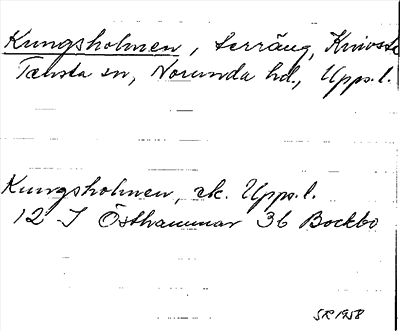 Kungsholmen, terräng, Knivsta
Tensta sn, Norunda hd., Upps. l.
Kungsholmen, ek. Upps. l.
12 I Östhammar 3b Bockbo
SR 1958